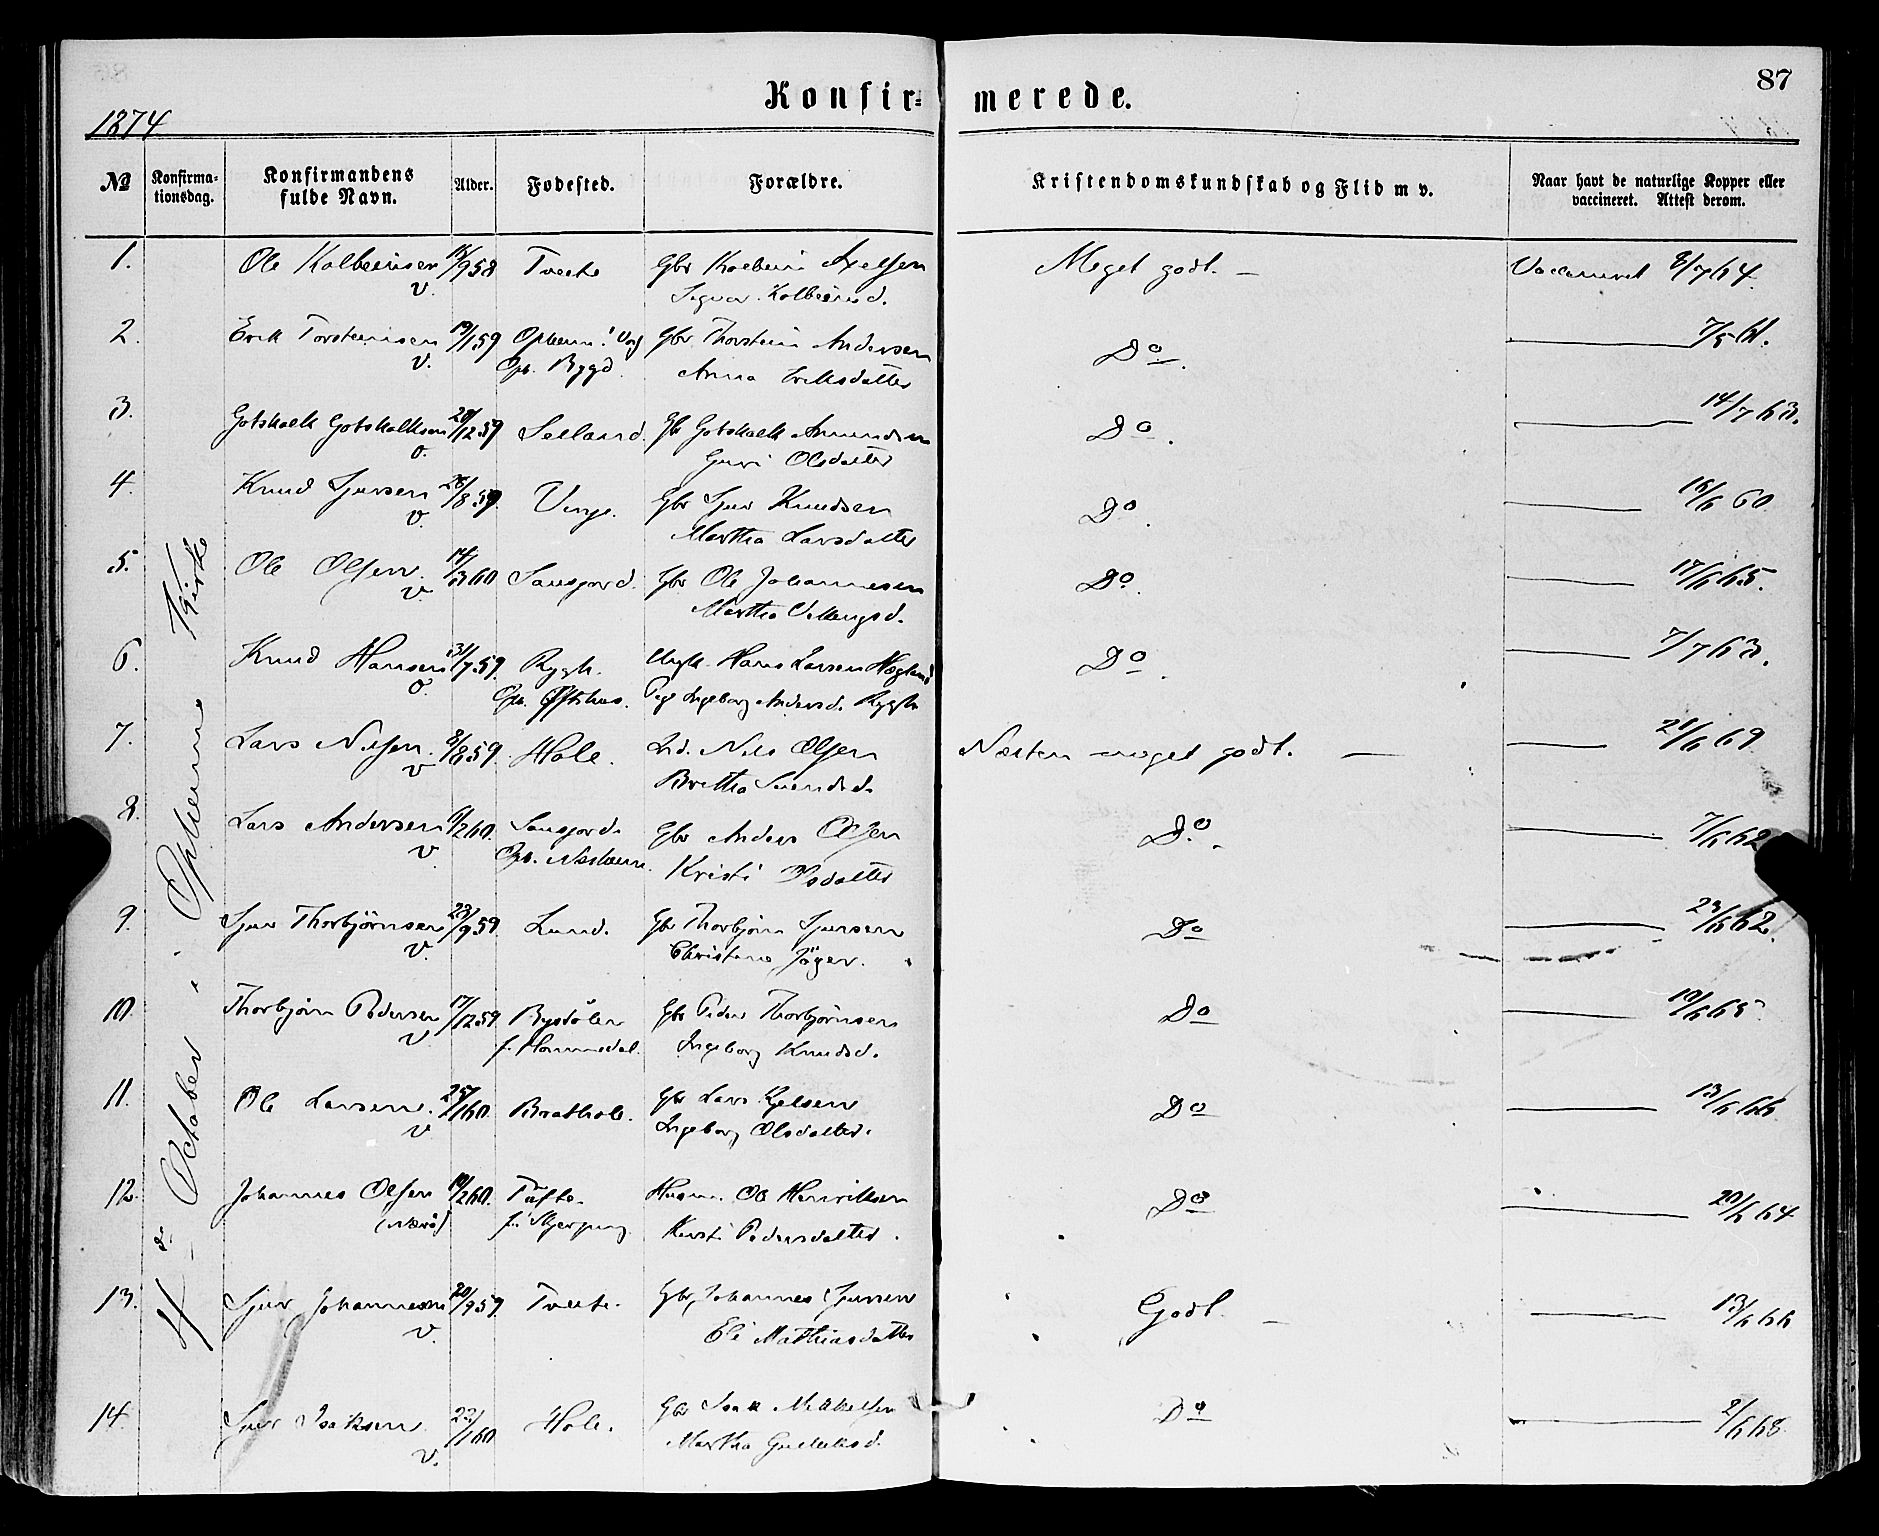 87
Konfir= merede.
1874
№ Konfirma-tionsdag. Konfirmandens fulde Navn. Alder. Fødested. Forældre. Kristendomskundskab og Flid m v. Naar havt de naturlige Kopper eller vaccineret. Attest derom.
4de October i Opheim Kirke
1. Ole Kolbeinsen /9 58 Tveite Gbr Kolbein Axelsen Meget godt. — Vaccineret 8/7 64.
v. Kolbeinsd.
2. Erik Torsteinsen 19/1 59 Opheim Gbr Thorstein Andersen Do. 7/5 61.
v. Op. Bygd. Anna Eriksdatter
3. Gotskalk Gotskalksen 20/12 59 Selland. Gbr Gotskalk Amundsen Do. 14/7 63.
v. Guri Olsdatter
4. Knud Sjursen 28/8 59. Vinje. Gbr Sjur Knudsen Do. 16/6 60
v. Martha Larsdatter
5. Ole Olsen. 14/3 60 Saugjord. Gbr Ole Johannesen Do. 17/6 65.
v. Martha
6. Knud Hansen 31/7 59. Rygh. Ungk. Hans Larsen Hægland Do. 7/7 63.
v. Op. Pige Ingeborg Andersd. Rygh
7. Lars Nilsen. 8/8 59. Hole. Ind. Nils Olsen Næsten meget godt. — 21/6 69
v. Brittha Svendsd.
8. Lars Andersen /2 60. Saugjord. Gbr Anders Olsen Do. 7/6 62
v. Op. Næsheim. Kristi
9. Sjur Thorbjörnsen 23/9 59. Lund. Gbr Thorbjörn Sjursen Do 23/6 62.
v. Christine Jäger.
10. Thorbjörn Pedersen 17/12 59 Gbr Peder Thorbjörnsen Do 10/6 65
v. f. Hommedal. Ingeborg Knudsd.
11. Ole Larsen. 25/1 60. Brathole. Gbr Lars Do 13/6 66.
v. Ingeborg Olsdatter.
12. Johannes Olsen 10/2 60. Tufte. Husm. Ole Henriksen Do 20/6 64
(Nærö) Kirsti Pedersdatter.
13. Sjur Johannesen 20/9 59 Tveite. Gbr Johannes Sjursen Godt. — 13/6 66
v. Eli Mathiasdatter
14. Sjur Isaksen 22/1 60 Hole. Gbr Isak Mikkelsen Do 2/6 68.
v. Martha